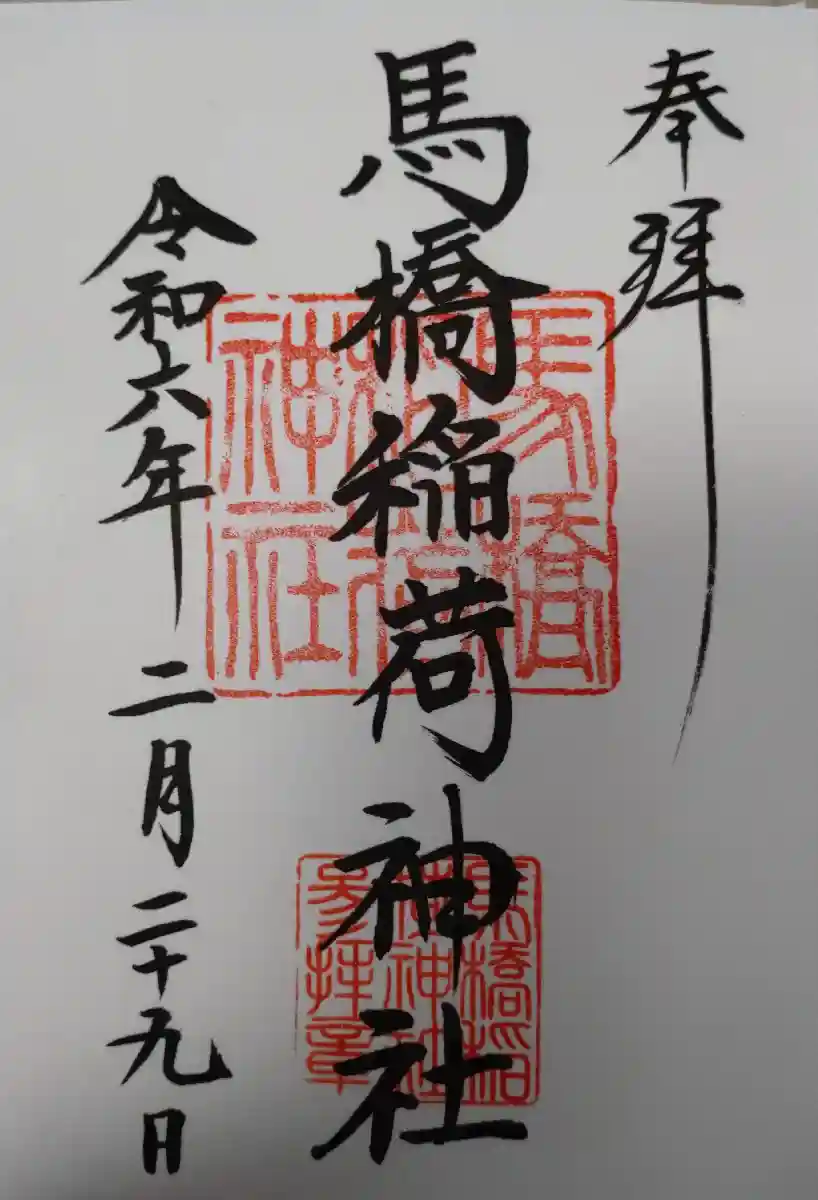 奉拜
馬橋稲荷神社
令和六年 二月 二十九日
馬橋
稲荷
神社
馬橋稲
荷神社
参拝章